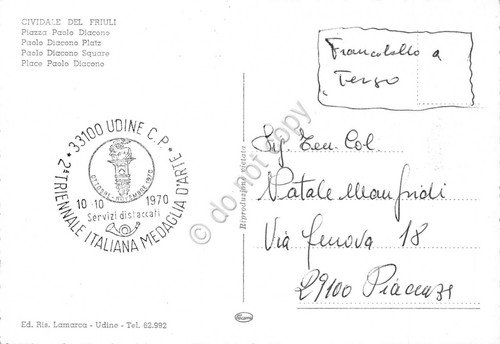 CIVIDALE DEL FRIULI
Piazza Paolo Diacono
Paolo Diacono Platz
Paolo Diacono Square
Place Paolo Diacono
Francobollo a
Tergo
33100 UDINE C.P.
2ª TRIENNALE ITALIANA MEDAGLIA D'ARTE
10-10 1970
Servizi distaccati
Riproduzione vietata
Ten Col.
Natale Manfridi
Via Genova 18
29100 Piacenza
Ed. Ris. Lamarca - Udine - Tel. 62.992
do not copy